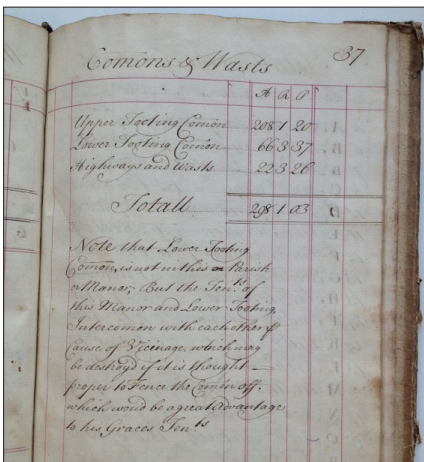 37
Comons & Wasts
A R P
Upper Tooting Comon 208 1 20
Lower Tooting Comon 66 3 37
Highways and Wasts 22 3 26
Totall 298 1 03
Note that Lower Tooting
Comon, is not in this Parish
or Manor; But the Tents of
this Manor and Lower Tooting
Intercomon with each other
cause of Vicinage, which may
be destroyd if it is thought
proper to Fence the Comon off.
which woud be a great advantage
to his Graces Tents